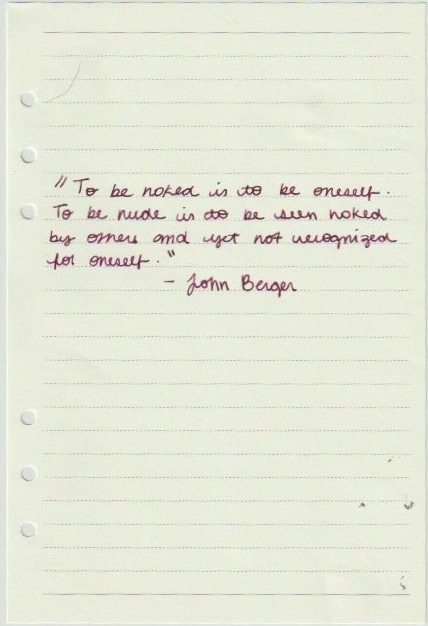 "To be naked is to be oneself.
To be nude is to be seen naked
by others and yet not recognized
for oneself."
- John Berger